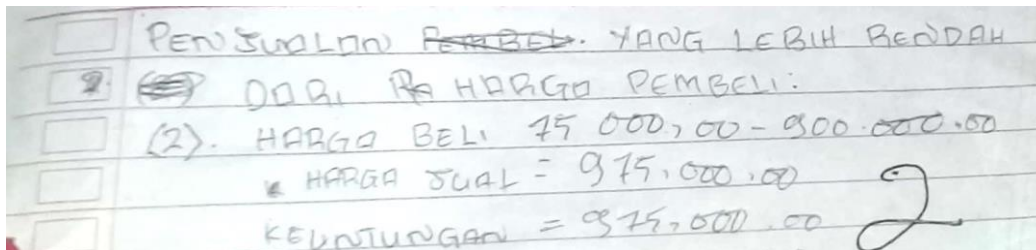 PENJUALAN YANG LEBIH RENDAH
2. DARI HARGA PEMBELI:
(2). HARGA BELI 75 000,00 - 900.000.00
HARGA JUAL = 975.000.00
KEUNTUNGAN = 975,000.00
2